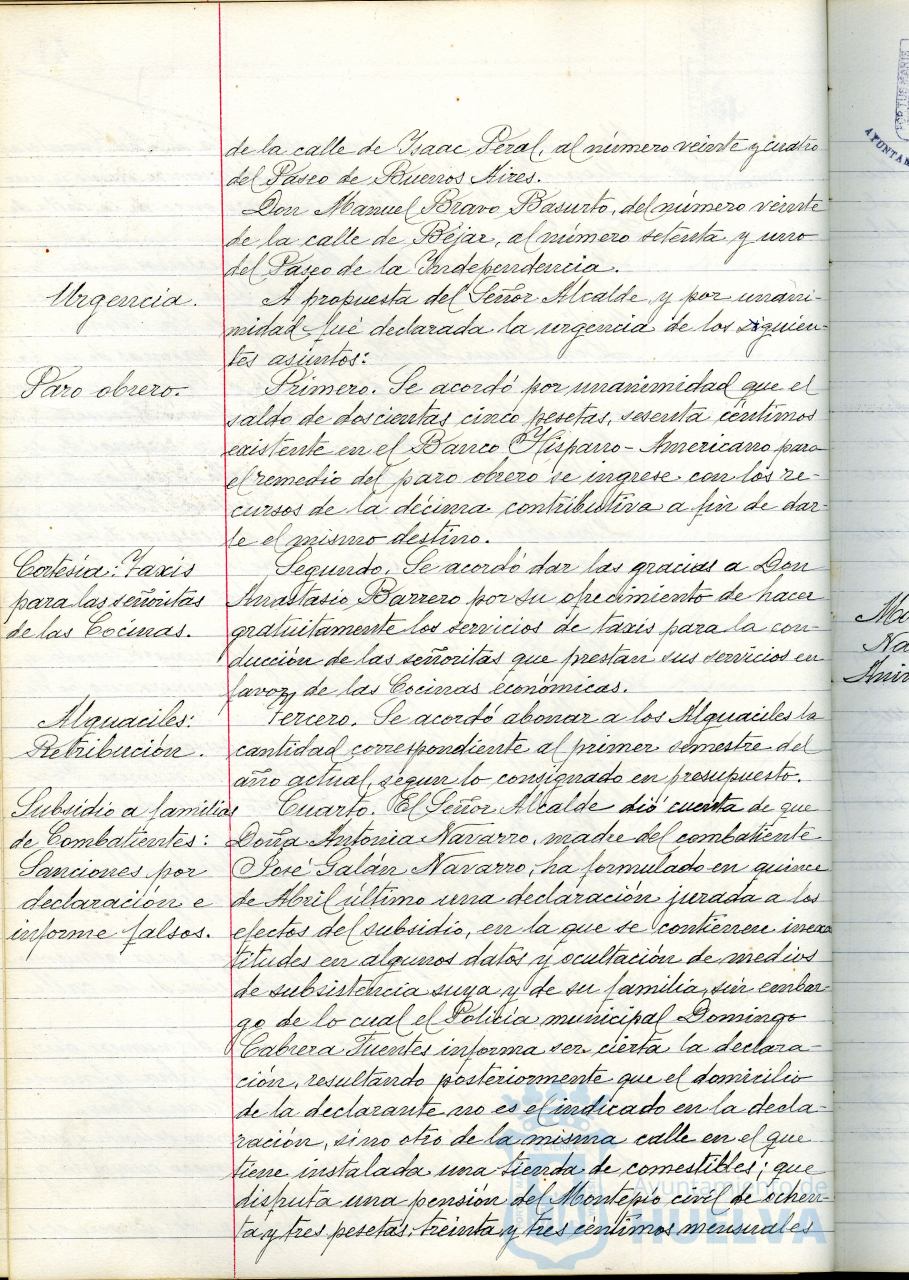 de la calle de Isaac Peral, al número veinte y cuatro
del Paseo de Buenos Aires.
Don Manuel Bravo Basurto, del número veinte
de la calle de Béjar, al número setenta y uno
del Paseo de la Independencia.
Urgencia.
A propuesta del Señor Alcalde y por unani-
midad fué declarada la urgencia de los siguien-
tes asuntos:
Paro obrero.
Primero. Se acordó por unanimidad que el
saldo de doscientas cinco pesetas, sesenta céntimos
existente en el Banco Hispano-Americano para
el remedio del paro obrero se ingrese con los re-
cursos de la décima contributiva a fin de dar-
le el mismo destino.
Cortesía: Taxis
para las señoritas
de las Cocinas.
Segundo. Se acordó dar las gracias a Don
Anastasio Barrero por su ofrecimiento de hacer
gratuitamente los servicios de taxis para la con-
ducción de las señoritas que prestan sus servicios en
favor de las Cocinas económicas.
Alguaciles:
Retribución.
Tercero. Se acordó abonar a los Alguaciles la
cantidad correspondiente al primer semestre del
año actual, segun lo consignado en presupuesto.
Subsidio a familias
de Combatientes:
Sanciones por
declaración e
informe falsos.
Cuarto. El Señor Alcalde dió cuenta de que
Doña Antonia Navarro, madre del combatiente
José Galán Navarro, ha formulado en quince
de Abril último una declaración jurada a los
efectos del subsidio, en la que se contienen inexac
titudes en algunos datos y ocultación de medios
de subsistencia suya y de su familia, sin embar-
go de lo cual el Policía municipal Domingo
Cabrera Fuentes informa ser cierta la declara-
ción, resultando posteriormente que el domicilio
de la declarante no es el indicado en la decla-
ración, sino otro de la misma calle en el que
tiene instalada una tienda de comestibles; que
disfruta una pensión del Montepío civil de ochen-
ta y tres pesetas, treinta y tres céntimos mensuales
Ayuntamiento de
HUELVA